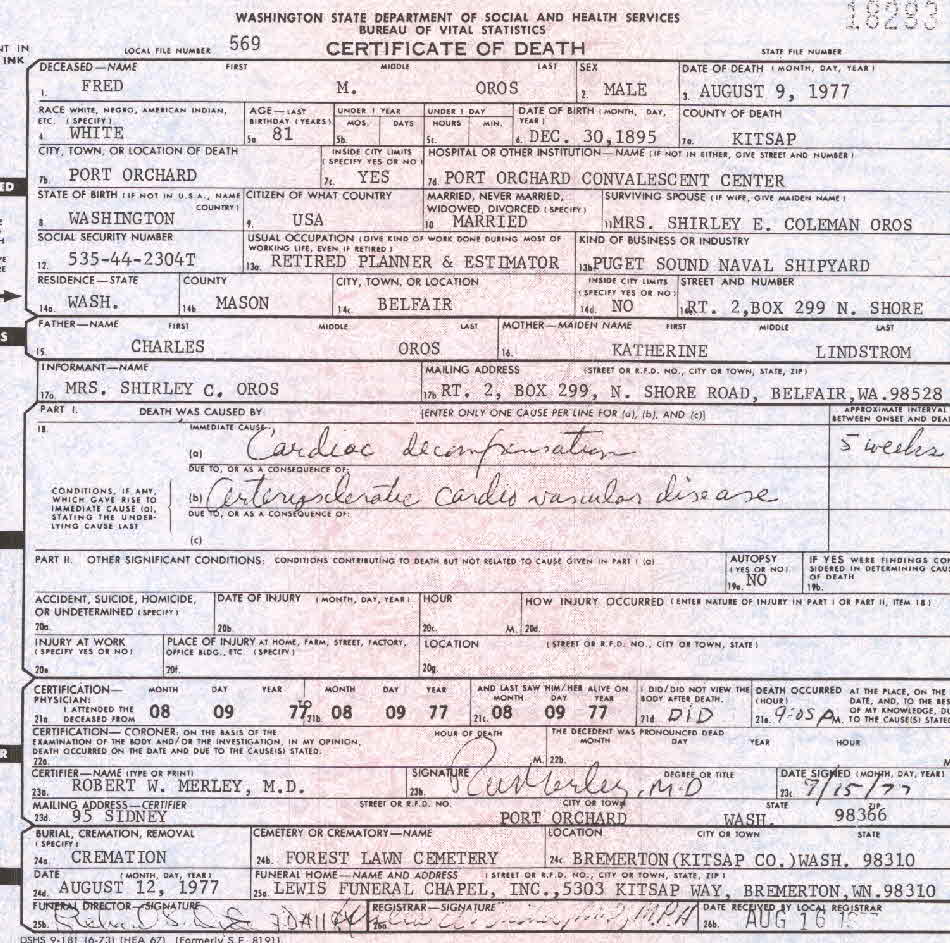 18293
WASHINGTON STATE DEPARTMENT OF SOCIAL AND HEALTH SERVICES
BUREAU OF VITAL STATISTICS
LOCAL FILE NUMBER 569 CERTIFICATE OF DEATH STATE FILE NUMBER
NT IN
INK
DECEASED—NAME FIRST MIDDLE LAST SEX DATE OF DEATH (MONTH, DAY, YEAR)
1. FRED M. OROS 2. MALE 3. AUGUST 9, 1977
RACE WHITE, NEGRO, AMERICAN INDIAN, AGE—LAST UNDER 1 YEAR UNDER 1 DAY DATE OF BIRTH (MONTH, DAY, COUNTY OF DEATH
ETC. (SPECIFY) BIRTHDAY (YEARS) MOS. DAYS HOURS MIN. YEAR)
4. WHITE 5a 81 5b. 5c. 6. DEC. 30,1895 7a. KITSAP
CITY, TOWN, OR LOCATION OF DEATH INSIDE CITY LIMITS HOSPITAL OR OTHER INSTITUTION—NAME (IF NOT IN EITHER, GIVE STREET AND NUMBER)
(SPECIFY YES OR NO)
7b. PORT ORCHARD 7c. YES 7d. PORT ORCHARD CONVALESCENT CENTER
STATE OF BIRTH (IF NOT IN U.S.A., NAME CITIZEN OF WHAT COUNTRY MARRIED, NEVER MARRIED, SURVIVING SPOUSE (IF WIFE, GIVE MAIDEN NAME)
COUNTRY) WIDOWED, DIVORCED (SPECIFY)
8. WASHINGTON 9. USA 10 MARRIED 11 MRS. SHIRLEY E. COLEMAN OROS
SOCIAL SECURITY NUMBER USUAL OCCUPATION (GIVE KIND OF WORK DONE DURING MOST OF KIND OF BUSINESS OR INDUSTRY
WORKING LIFE, EVEN IF RETIRED)
12. 535-44-2304T 13a. RETIRED PLANNER & ESTIMATOR 13b. PUGET SOUND NAVAL SHIPYARD
RESIDENCE—STATE COUNTY CITY, TOWN, OR LOCATION INSIDE CITY LIMITS STREET AND NUMBER
(SPECIFY YES OR NO)
14a. WASH. 14b MASON 14c. BELFAIR 14d. NO RT. 2,BOX 299 N. SHORE
FATHER—NAME FIRST MIDDLE LAST MOTHER—MAIDEN NAME FIRST MIDDLE LAST
15. CHARLES OROS 16. KATHERINE LINDSTROM
INFORMANT—NAME MAILING ADDRESS (STREET OR R.F.D. NO., CITY OR TOWN, STATE, ZIP)
17a. MRS. SHIRLEY C. OROS 17b RT. 2, BOX 299, N. SHORE ROAD, BELFAIR,WA.98528
PART I. DEATH WAS CAUSED BY: [ENTER ONLY ONE CAUSE PER LINE FOR (a), (b), AND (c)] APPROXIMATE INTERVAL
BETWEEN ONSET AND DEA
18. IMMEDIATE CAUSE
(a) Cardiac decompensation 5 weeks
DUE TO, OR AS A CONSEQUENCE OF:
CONDITIONS, IF ANY,
WHICH GAVE RISE TO
IMMEDIATE CAUSE (a),
STATING THE UNDER-
LYING CAUSE LAST
(b) Arteriosclerotic cardio vascular disease
DUE TO, OR AS A CONSEQUENCE OF:
(c)
PART II. OTHER SIGNIFICANT CONDITIONS: CONDITIONS CONTRIBUTING TO DEATH BUT NOT RELATED TO CAUSE GIVEN IN PART I (a) AUTOPSY IF YES WERE FINDINGS CON
(YES OR NO) SIDERED IN DETERMINING CAUS
OF DEATH
19a. NO 19b.
ACCIDENT, SUICIDE, HOMICIDE, DATE OF INJURY (MONTH, DAY, YEAR) HOUR HOW INJURY OCCURRED (ENTER NATURE OF INJURY IN PART I OR PART II, ITEM 18)
OR UNDETERMINED (SPECIFY)
20a. 20b. 20c. M. 20d.
INJURY AT WORK PLACE OF INJURY AT HOME, FARM, STREET, FACTORY, LOCATION (STREET OR R.F.D. NO., CITY OR TOWN, STATE)
(SPECIFY YES OR NO) OFFICE BLDG., ETC. (SPECIFY)
20e 20f. 20g.
CERTIFICATION— MONTH DAY YEAR MONTH DAY YEAR AND LAST SAW HIM/HER ALIVE ON I DID/DID NOT VIEW THE DEATH OCCURRED AT THE PLACE, ON THE
PHYSICIAN: TO MONTH DAY YEAR BODY AFTER DEATH. (HOUR) DATE, AND, TO THE BES
I ATTENDED THE OF MY KNOWLEDGE, DU
21a. DECEASED FROM 08 09 77 21b 08 09 77 21c. 08 09 77 21d DID 21e. 9:05 A M. TO THE CAUSE(S) STATED
CERTIFICATION—CORONER: ON THE BASIS OF THE HOUR OF DEATH THE DECEDENT WAS PRONOUNCED DEAD
EXAMINATION OF THE BODY AND/OR THE INVESTIGATION, IN MY OPINION, MONTH DAY YEAR HOUR
DEATH OCCURRED ON THE DATE AND DUE TO THE CAUSE(S) STATED.
22a. M. 22b. M
CERTIFIER—NAME (TYPE OR PRINT) SIGNATURE DEGREE OR TITLE DATE SIGNED (MONTH, DAY, YEAR)
23a. ROBERT W. MERLEY, M.D. 23b. RW Merley, M.D 23c
MAILING ADDRESS—CERTIFIER STREET OR R.F.D. NO. CITY OR TOWN STATE ZIP
23d. 95 SIDNEY PORT ORCHARD WASH. 98366
BURIAL, CREMATION, REMOVAL CEMETERY OR CREMATORY—NAME LOCATION CITY OR TOWN STATE
(SPECIFY)
24a. CREMATION 24b. FOREST LAWN CEMETERY 24c. BREMERTON(KITSAP CO.)WASH. 98310
DATE (MONTH, DAY, YEAR) FUNERAL HOME—NAME AND ADDRESS (STREET OR R.F.D. NO., CITY OR TOWN, STATE, ZIP)
24d. AUGUST 12, 1977 25a. LEWIS FUNERAL CHAPEL, INC.,5303 KITSAP WAY, BREMERTON,WN.98310
FUNERAL DIRECTOR—SIGNATURE REGISTRAR—SIGNATURE DATE RECEIVED BY LOCAL REGISTRAR
25b. 26a. M.P.H 26b. AUG 16
DSHS 9-181 (6-73) (HEA 67) (Formerly S.F. 8191).